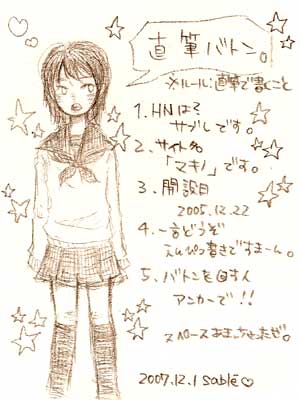 直筆バトン。
※ルール:直筆で書くこと
1. HNは?
サブレです。
2. サイト名
「マキノ」です。
3. 開設日
2005.12.22
4. 一言どうぞ
えんぴつ書きですまーん。
5. バトンを回す人
アンカーで!!
スペースあまっちゃったぜ。
2007.12.1 sablé♡